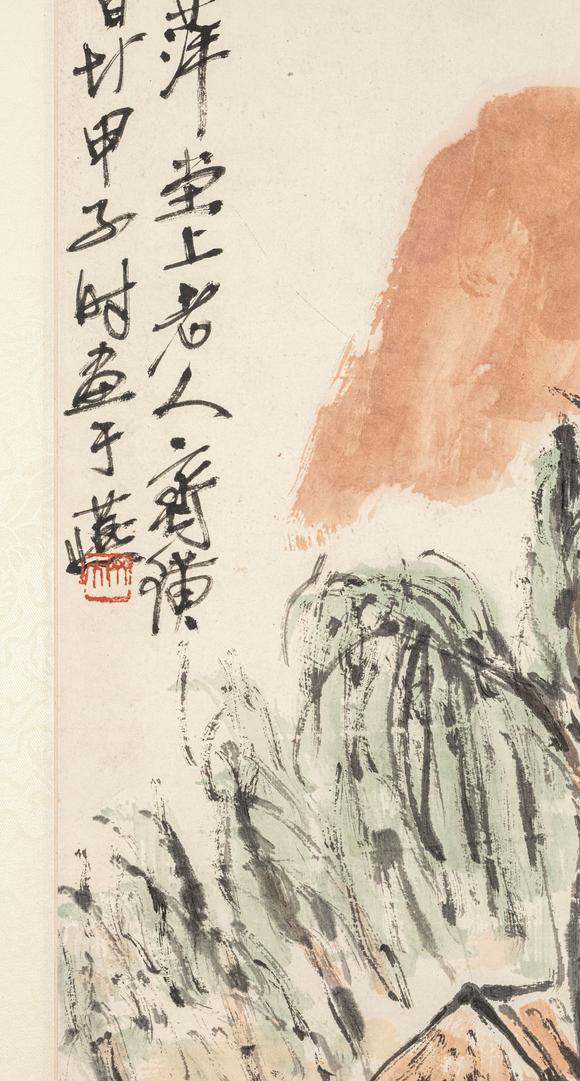 萍堂上老人齊璜
甲子时畫于燕